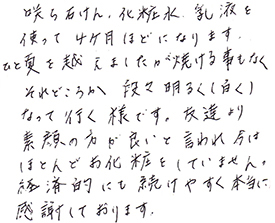 咲ら石けん、化粧水、乳液を
使って4ケ月ほどになります。
ひと夏を越えましたが焼ける事もなく
それどころか 段々明るく(白く)
なって行く様です。友達より
素顔の方が良いと言われ今は
ほとんどお化粧をしていません。
経済的にも続けやすく本当に
感謝しております。